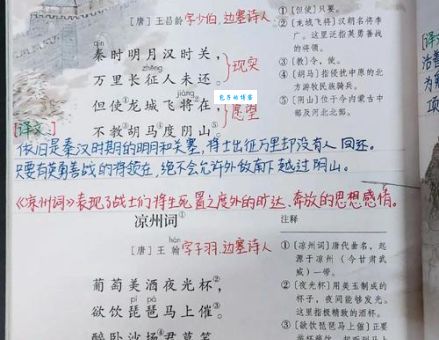 [唐] 王昌龄 字少伯,边塞诗人
qín
秦时明月汉时关,
zhēng
万里长征人未还。
现实
jiàng
但使龙城飞将在,
不教胡马度阴山。
愿望
包子的博客
① [但使] 只要。
② [龙城飞将] 汉朝名将李
广。这里泛指英勇善战
的将领。
③ [教] 令,使。
④ [胡马] 指侵扰中原的北
方游牧民族骑兵。
⑤ [阴山] 位于今内蒙古中
部及河北北部。
[译文:]
依旧是秦汉时期的明月和关塞,将士出征万里却没有人回还。
只要有英勇善战的将领在,绝不会允许外敌南下越过阴山。
《凉州词》表现了战士们将生死置之度外的旷达、奔放的思想感情。
凉州词①
hàn
[唐] 王翰 字子羽,边塞诗人
葡萄美酒夜光杯②,
pí pá
欲饮琵琶马上催③。
醉卧沙场④君莫笑
注释
① [凉州词] 唐代曲名,起
源于凉州(今甘肃武
威)一带。
② [夜光杯] 用美玉制成的
杯子,夜间能够发光。
这里指极精致的酒杯。
③ [欲饮琵琶马上催] 正要
[译文